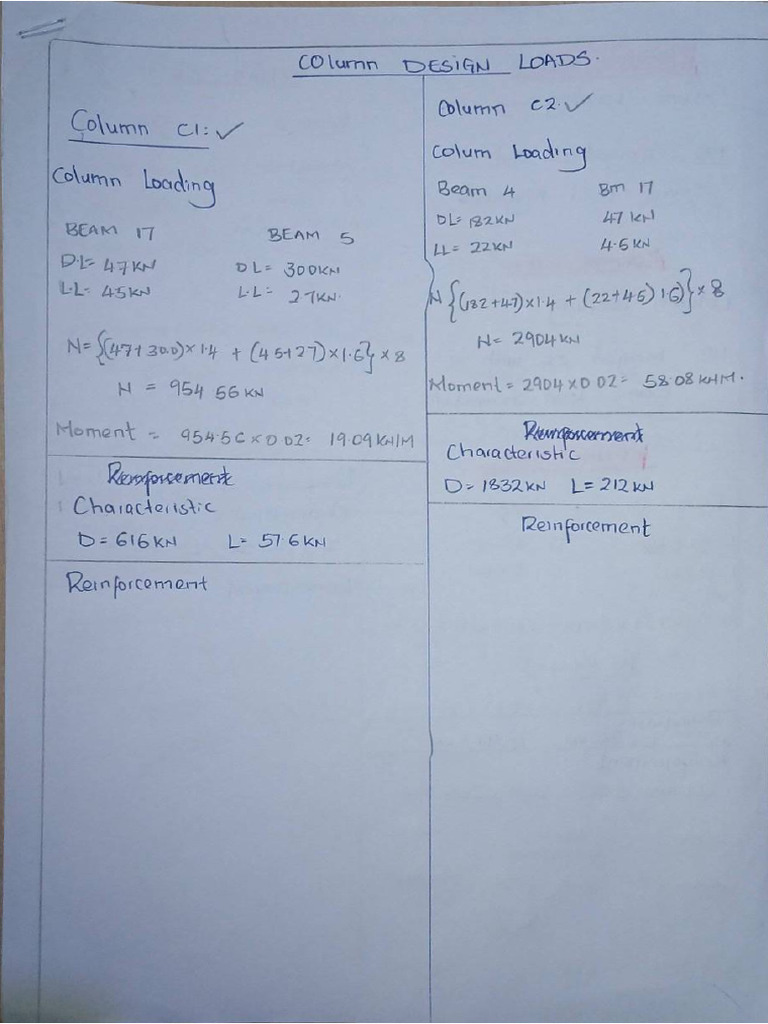 Column DESIGN LOADS.
Column C1: ✓
Column Loading
BEAM 17 BEAM 5
D.L= 47KN DL= 300KN
L.L= 45KN L.L= 27KN.
N={(47+30.0)×1.4 + (45+27)×1.6}×8
N = 954 56KN
Moment = 954.56×0 02= 19.09KN/M
Reinforcement
Characteristic
D=616KN L= 57.6KN
Reinforcement
Column C2. ✓
Colum Loading
Beam 4 Bm 17
DL= 182KN 47 KN
LL= 22KN 4.5 KN
N{(182+47)×1.4 + (22+45)1.6}×8
N= 2904KN
Moment = 2904×0 02= 58.08KNM.
Reinforcement
Characteristic
D=1832KN L=212KN
Reinforcement